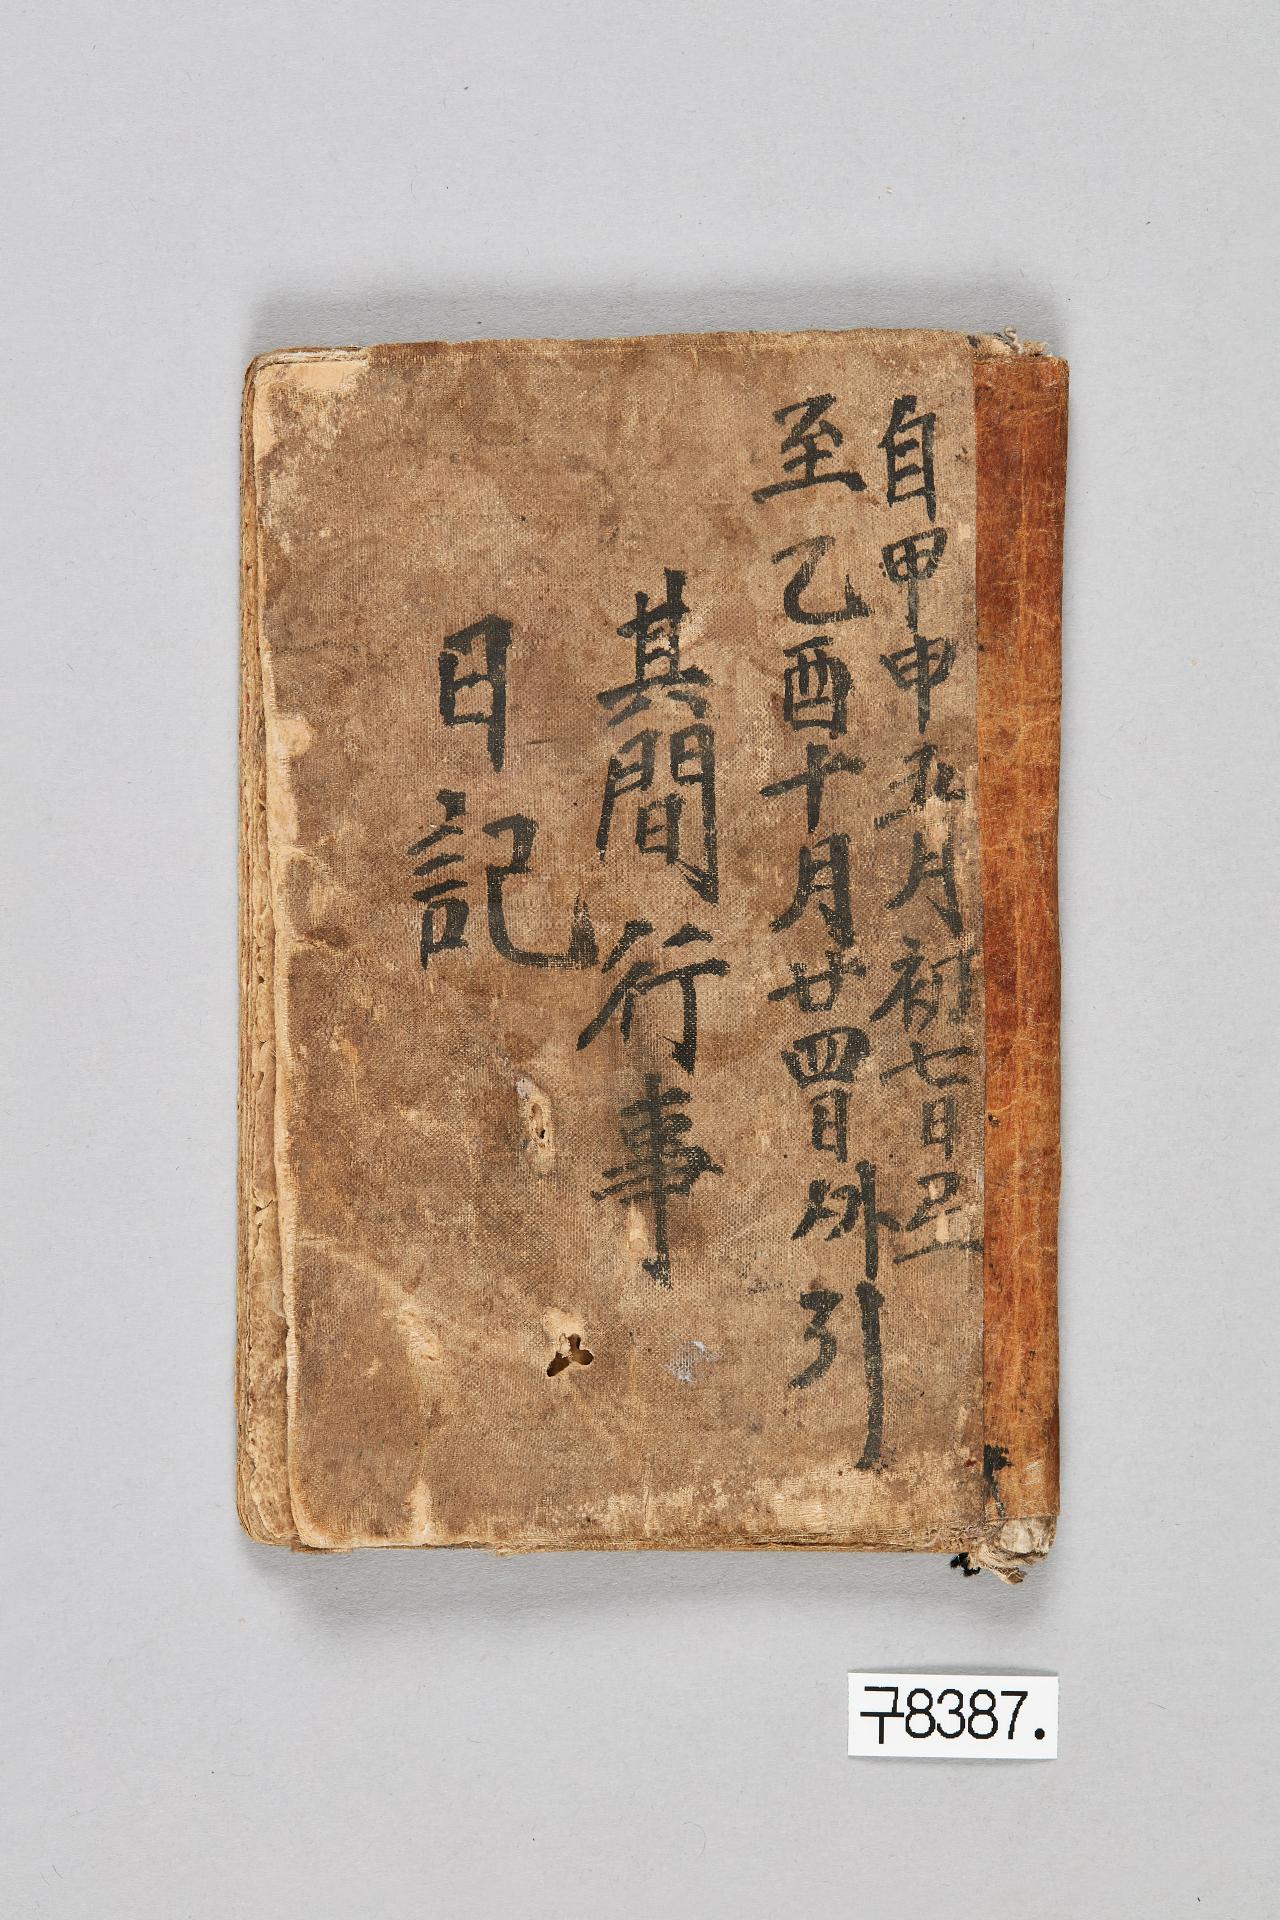 自甲申月初七日
至乙酉十月廿四日外引
其間行事
日記
구8387.